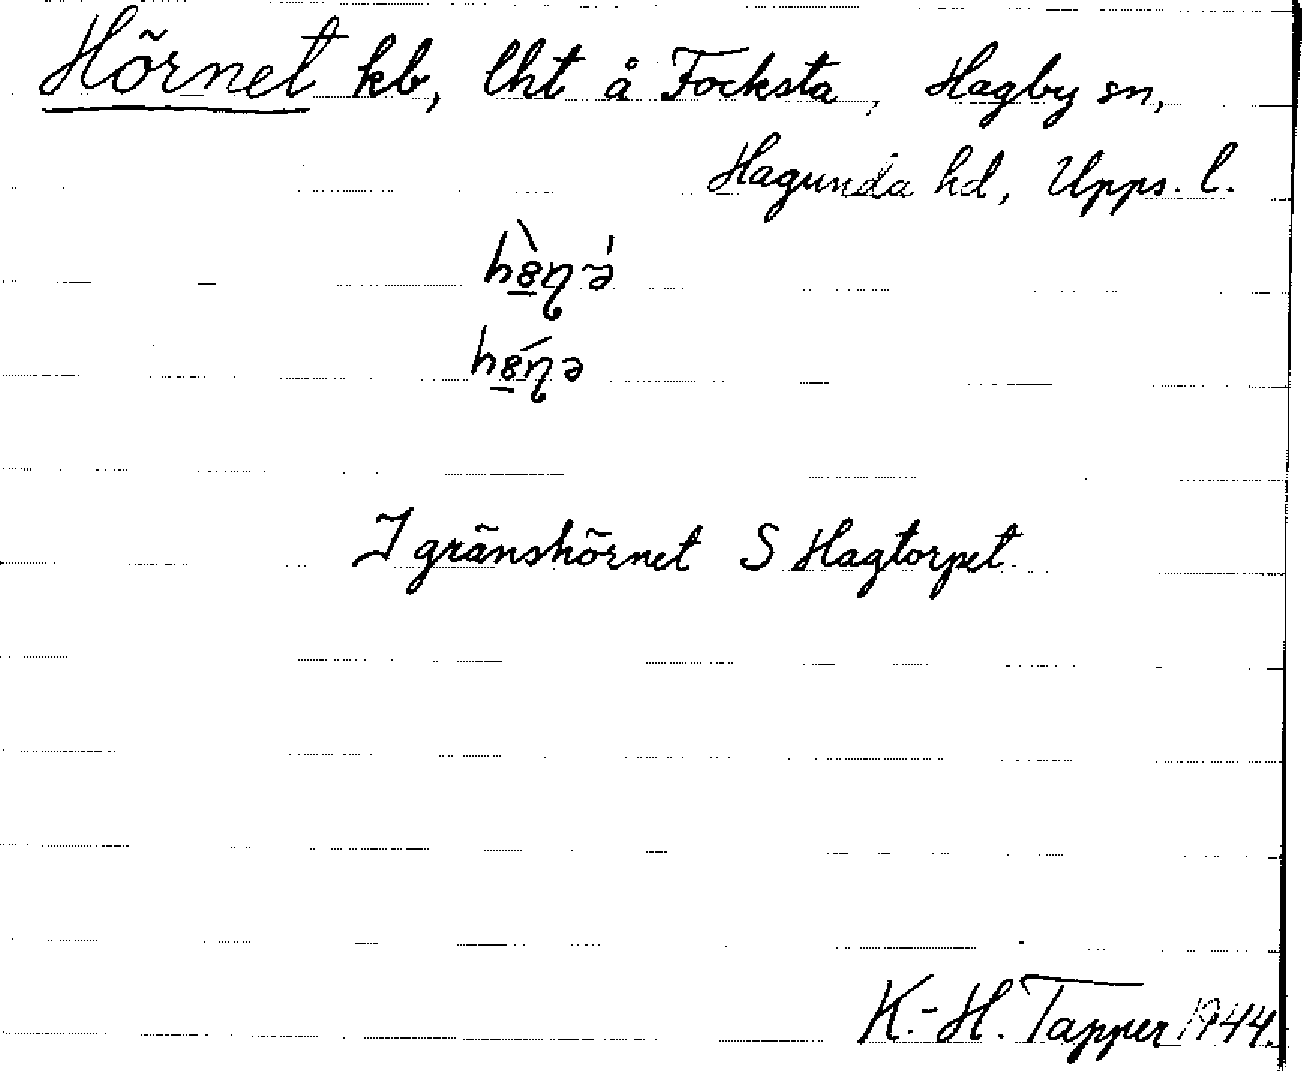 Hörnet kb, lht å Focksta, Hagby sn,
Hagunda hd, Upps. l.
I gränshörnet S Hagtorpet.
K.-H. Tapper 1944.